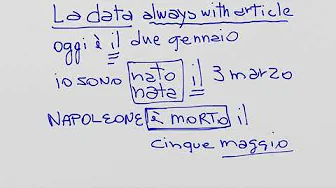 La data always with article
oggi è il due gennaio
io sono nato il 3 marzo
nata
NAPOLEONE È MORTO il
cinque maggio